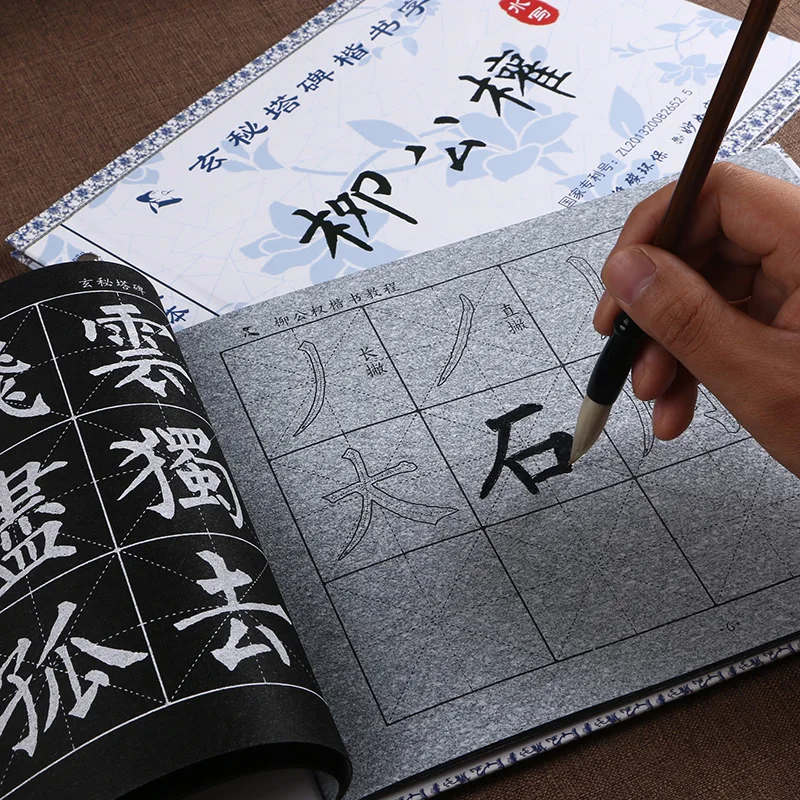 水写
玄秘塔碑楷书字
柳公權
国家专利号：ZL201320082652.5
玄秘塔碑
雲
獨
去
盡
孤
柳公权楷书教程
长撇
直撇
大
石